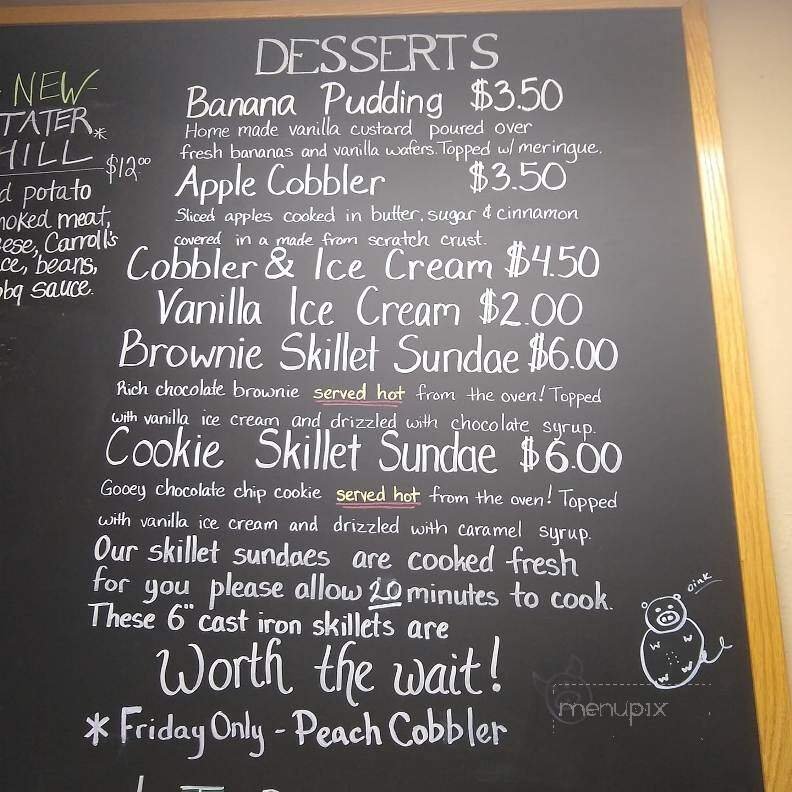 DESSERTS
Banana Pudding $3.50
Home made vanilla custard poured over
fresh bananas and vanilla wafers. Topped w/ meringue.
Apple Cobbler $3.50
Sliced apples cooked in butter, sugar & cinnamon
covered in a made from scratch crust.
Cobbler & Ice Cream $4.50
Vanilla Ice Cream $2.00
Brownie Skillet Sundae $6.00
Rich chocolate brownie served hot from the oven! Topped
with vanilla ice cream and drizzled with chocolate syrup.
Cookie Skillet Sundae $6.00
Gooey chocolate chip cookie served hot from the oven! Topped
with vanilla ice cream and drizzled with caramel syrup.
Our skillet sundaes are cooked fresh
for you please allow 20 minutes to cook.
These 6" cast iron skillets are
Worth the wait!
* Friday Only - Peach Cobbler
oink
menupix
- NEW -
TATER *
HILL $12.00
d potato
moked meat,
ese, Carroll's
ce, beans,
bbq sauce.